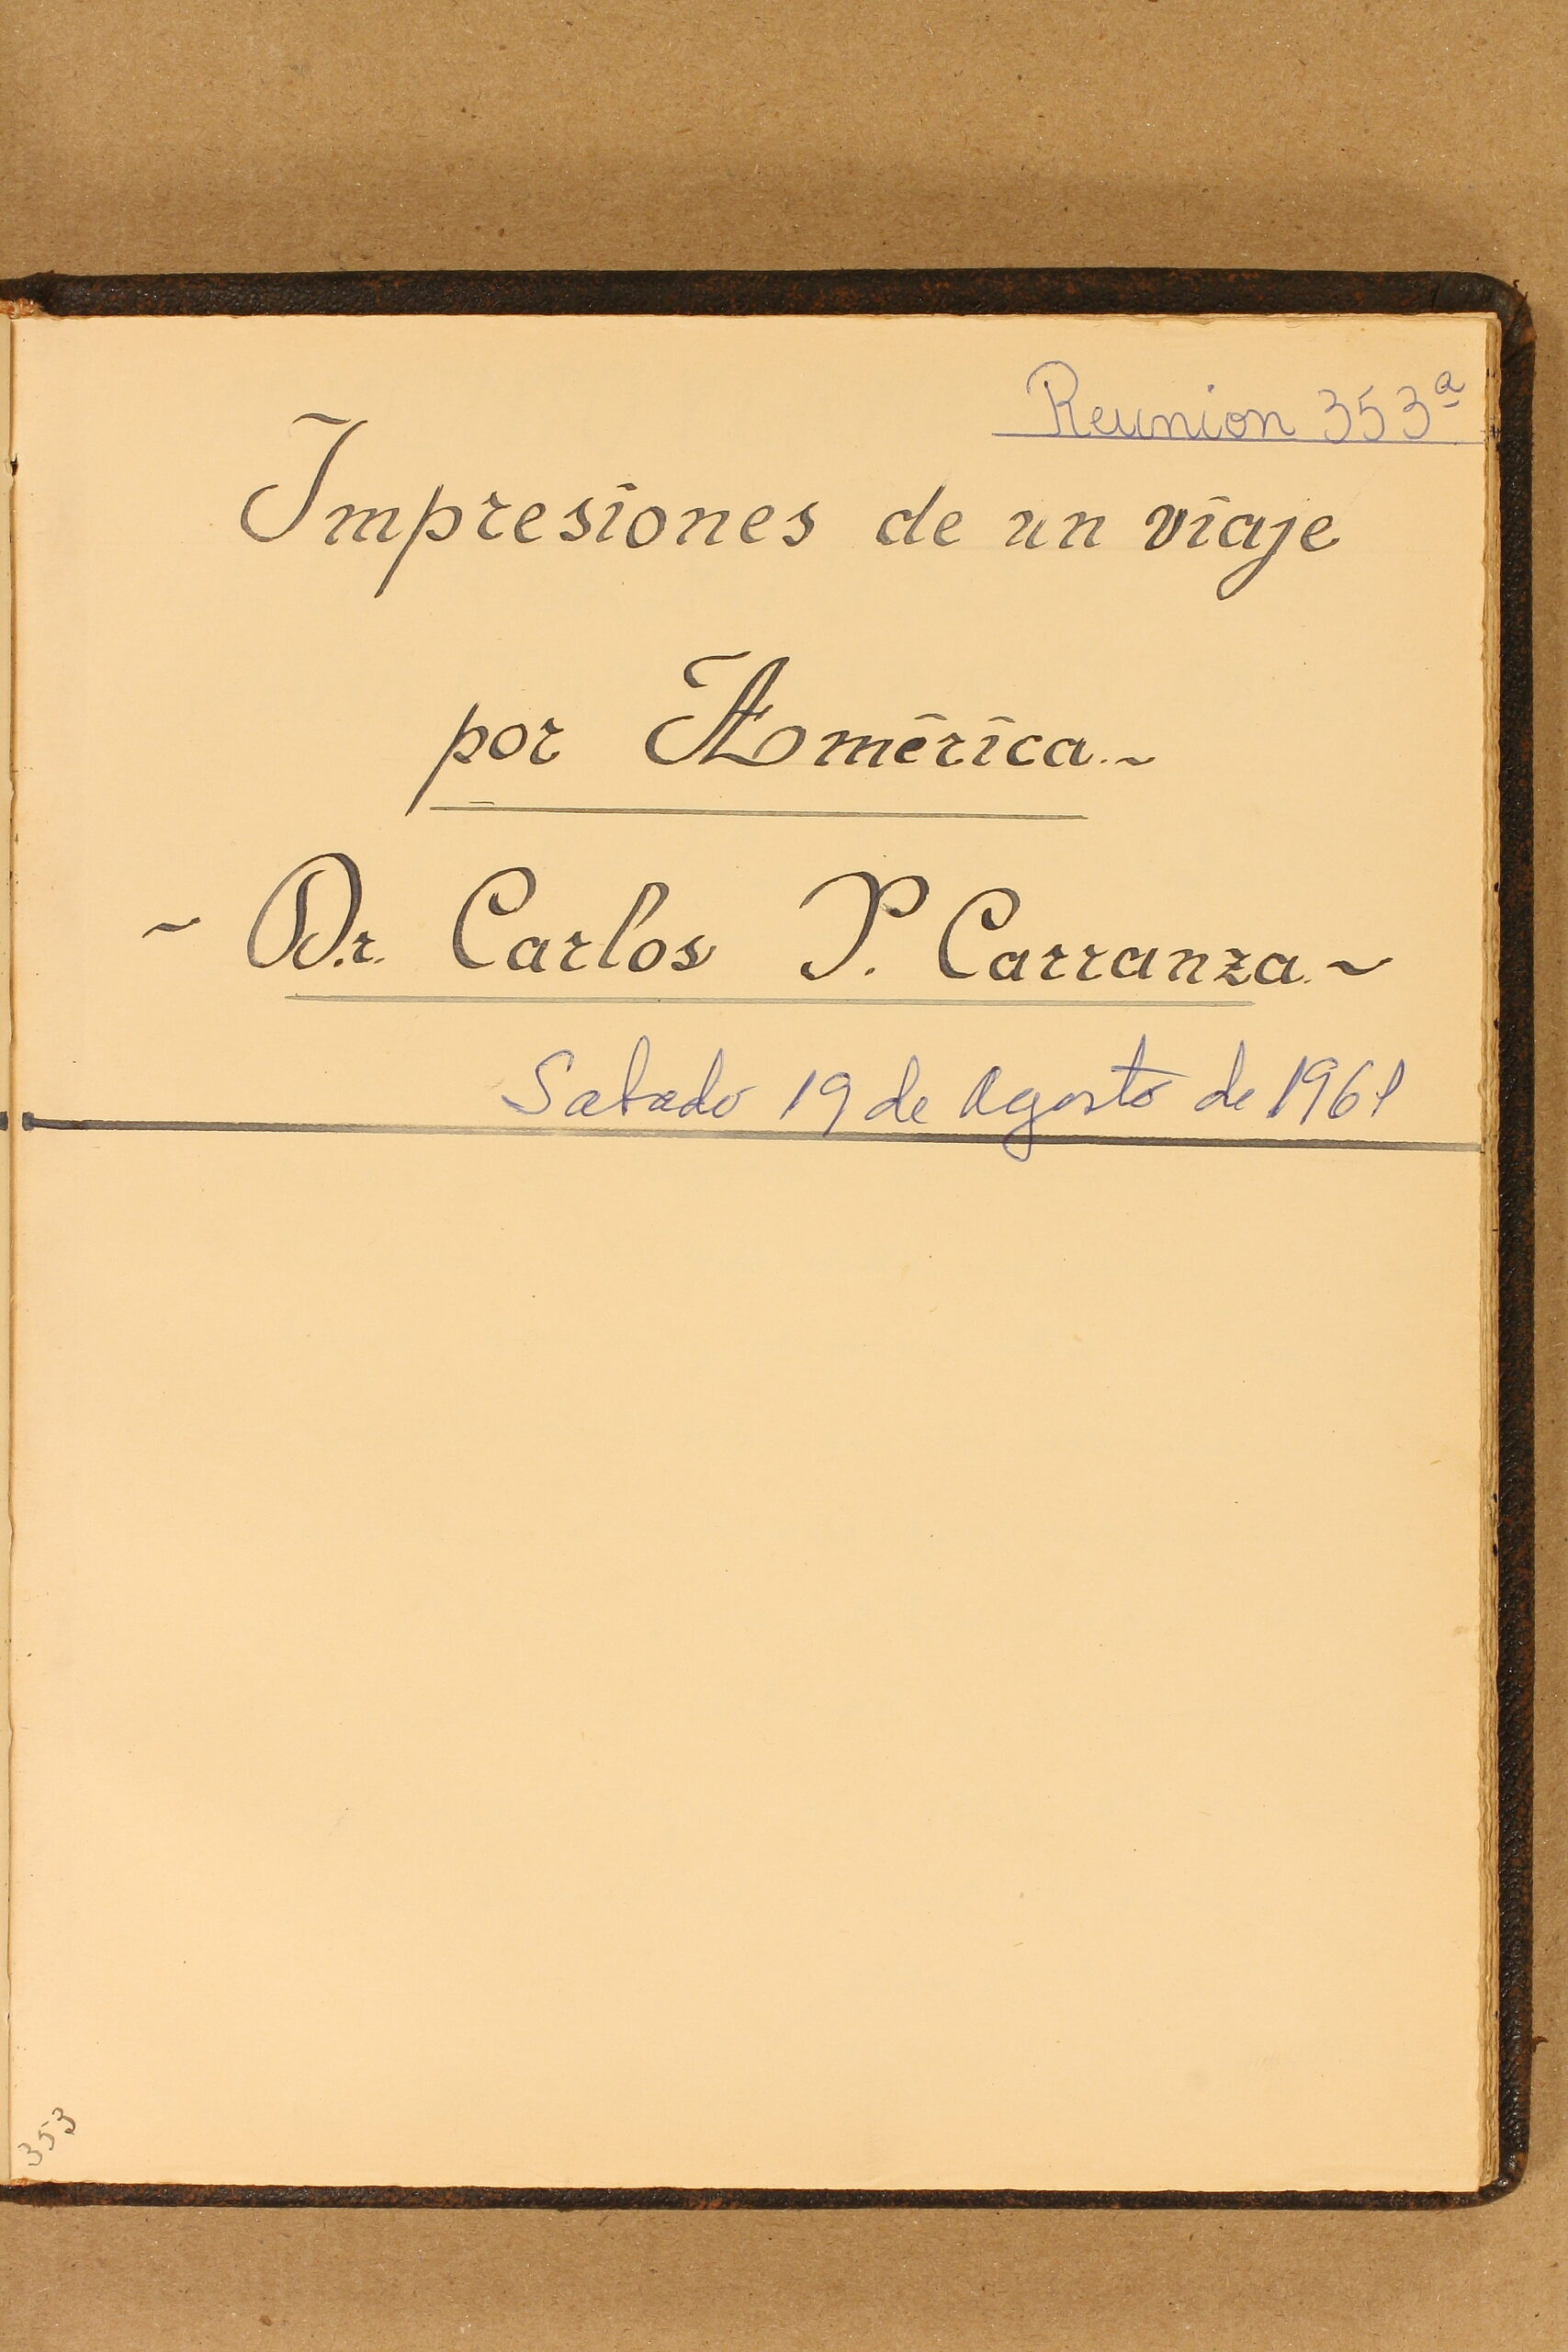 Reunion 353ª
Impresiones de un viaje
por América.~
~ Dr. Carlos P. Carranza.~
Sabado 19 de Agosto de 1961
353